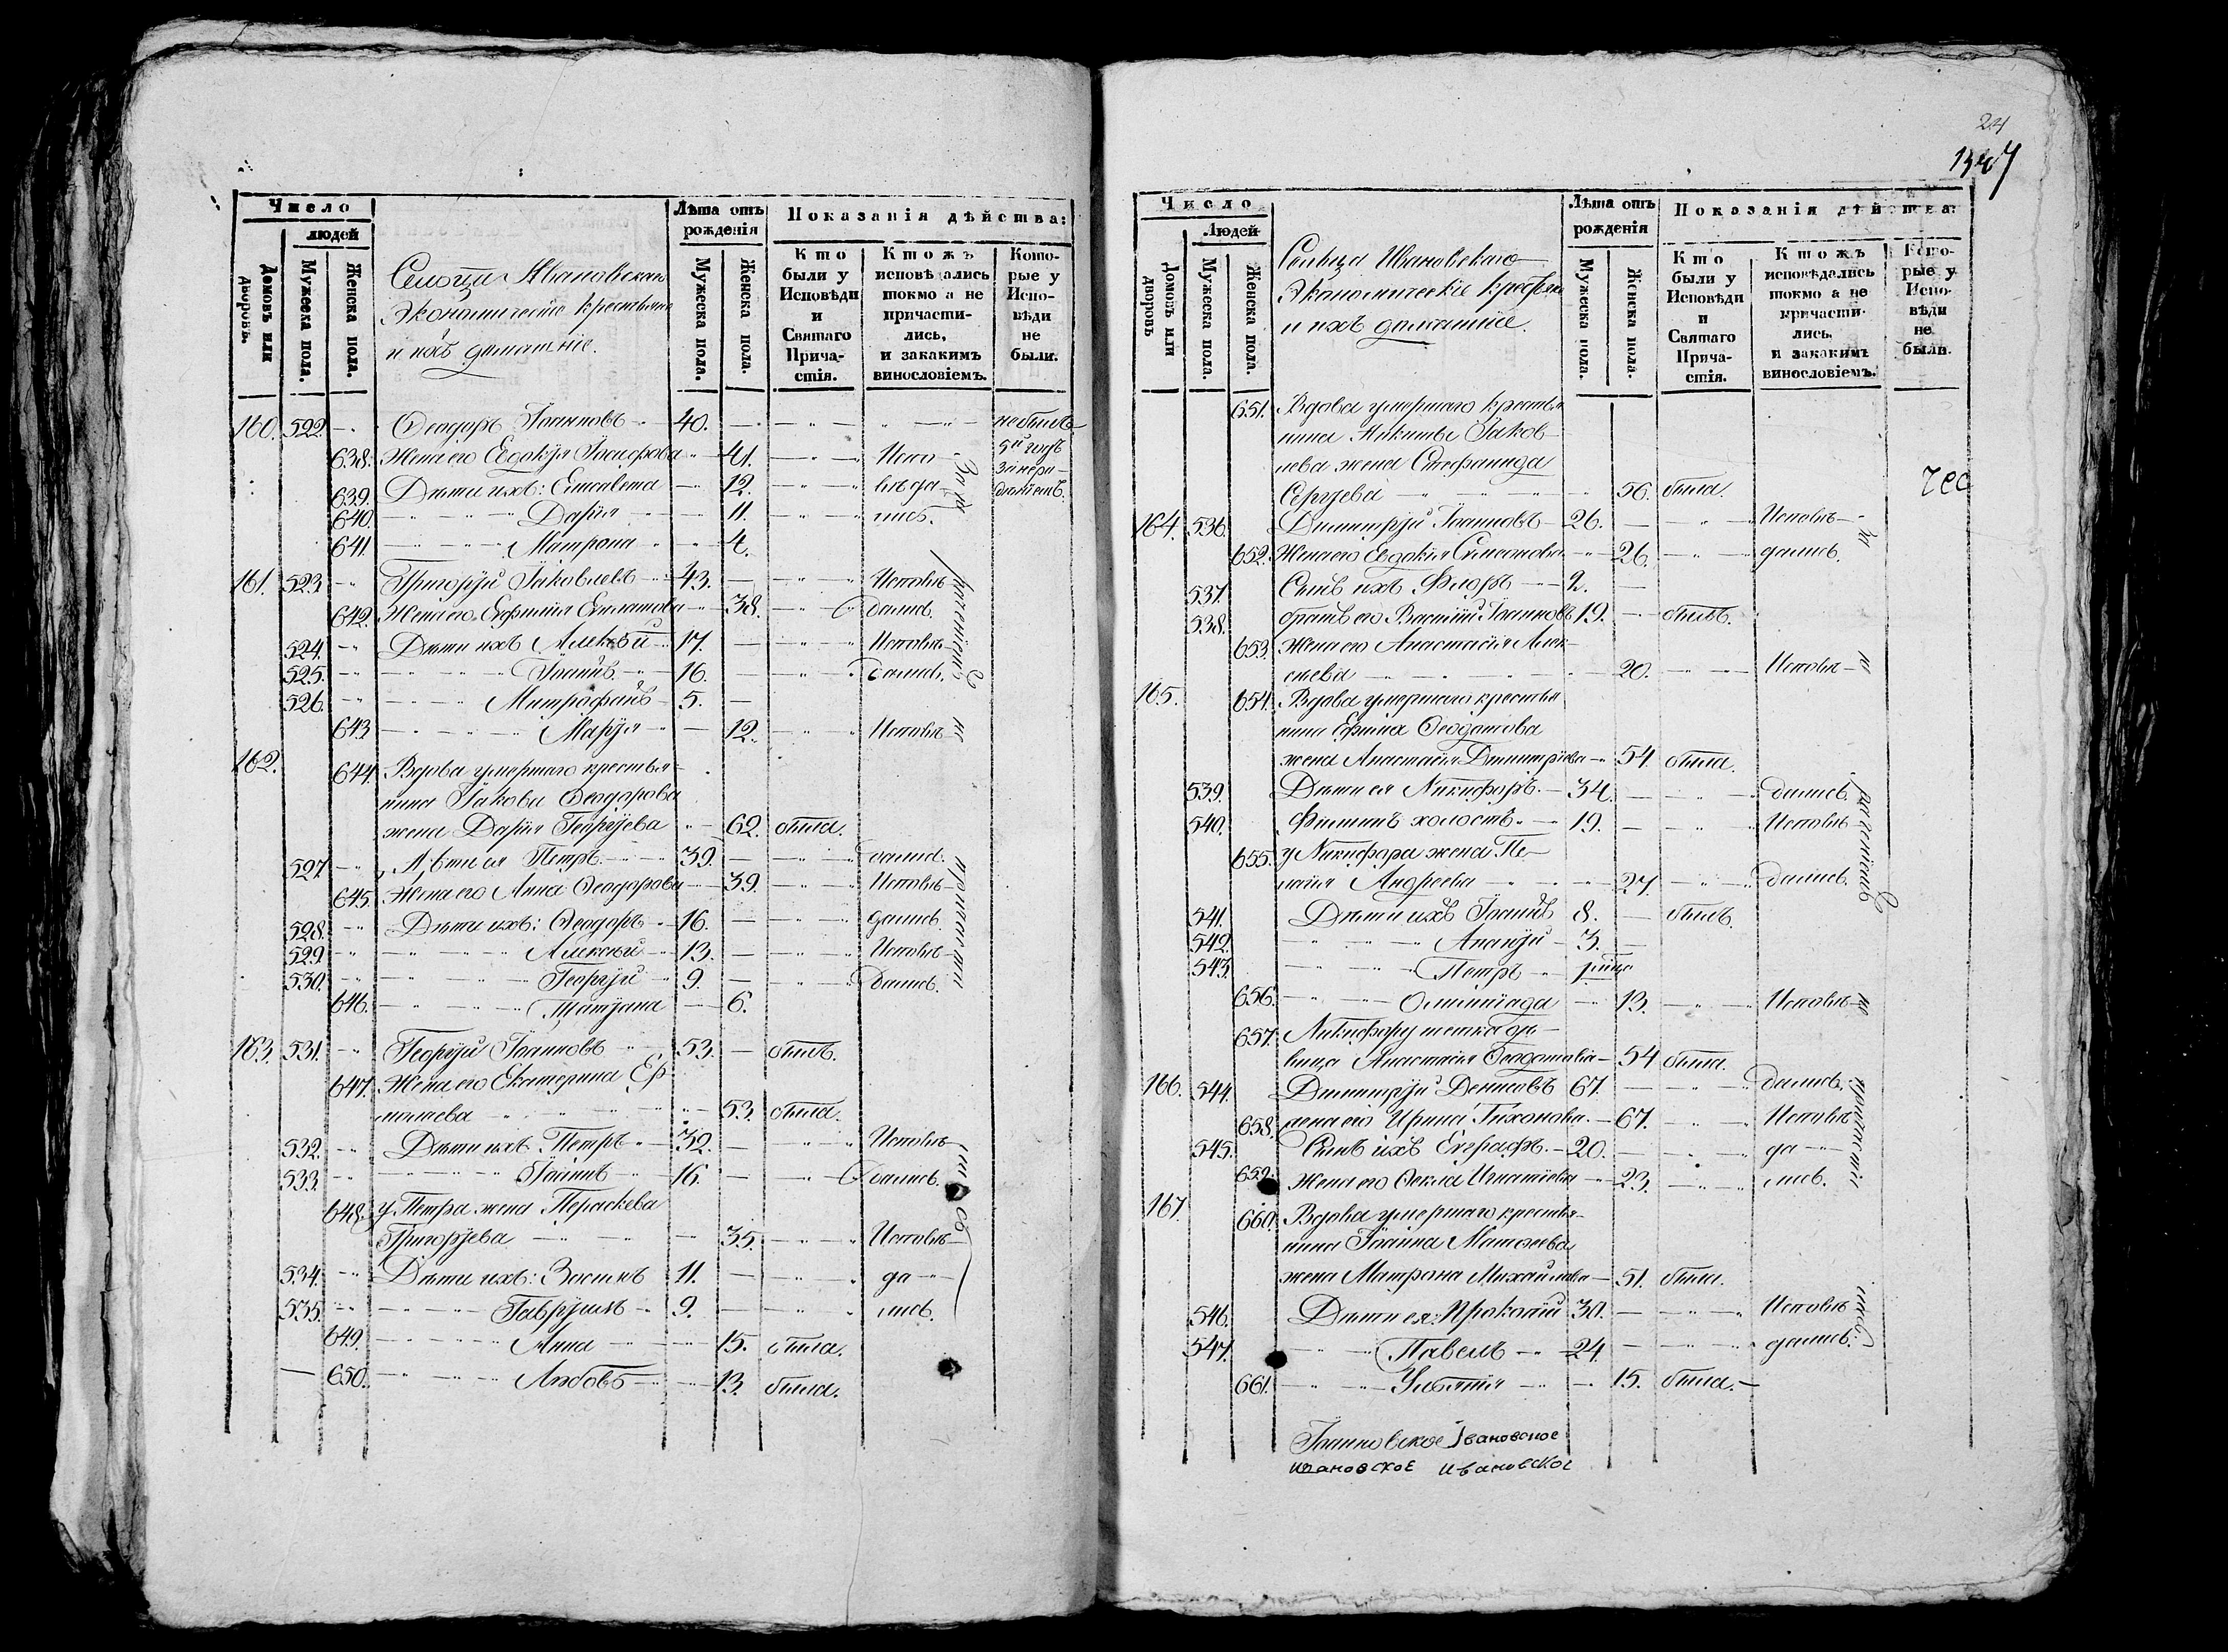 Число
людей
Домовъ или дворовъ.
Мужеска пола.
Женска пола.
Сельца Ивановскаго
Экономическіе крестьяне
и ихъ домашніе.
Лѣта отъ рожденія
Мужеска пола.
Женска пола.
Показанія дѣйства:
Кто были у Исповѣди и Святаго Прича-стія.
Ктожъ исповѣдались токмо а не причасти-лись, и закакимъ винословіемъ.
Кото-рые у Испо-вѣди не были.
160. 522. Ѳеодоръ Іоанновъ 40. небылъ
638. Жена его Евдокія Іосифова 41. Испо- 5й годъ
639. Дѣти ихъ: Елисавета 12. вѣда
640. Дарія 11. лись.
641. Матрона 4.
161. 523. Григорій Яковлевъ 43. Исповѣ
642. Жена его Евфимія 38. дались.
524. Дѣти ихъ Алексѣй 17. Исповѣ-
525. Іоаннъ 16. дались.
526. Митрофанъ 5.
643. Марія 12. Исповѣ
162. 644. Вдова умершаго крестья-
нина Іакова Ѳеодорова
жена Дарія Георгіева 62. была.
527. Дѣти ея Петръ 39. дались.
645. Жена его Анна Ѳеодорова 39. Исповѣ-
528. Дѣти ихъ: Ѳеодоръ 16. дались.
529. Алексѣй 13. Исповѣ-
530. Георгій 9. дались.
646. Татіана 6.
163. 531. Георгій Іоанновъ 53. былъ.
647. Жена его Екатерина Ер
молаева 53. была.
532. Дѣти ихъ Петръ 32. Исповѣ
533. Іоаннъ 16. дались.
648. у Петра жена Параскева
Григорьева 35. Исповѣ-
534. Дѣти ихъ: 11. да
535. Гавріилъ 9. лись.
649. Анна 15. была.
650. Любовь 13. была.
За нерадѣніемъ
причасти
лись
24
1347
Число
Людей
Домовъ или дворовъ
Мужеска пола.
Женска пола.
Сельца Ивановскаго
Экономическіе крестьяне
и ихъ домашніе.
Лѣта отъ рожденія
Мужеска пола.
Женска пола.
Показанія дѣйства:
Кто были у Исповѣди и Святаго Прича-стія.
Ктожъ исповѣдались токмо а не причасти-лись, и закакимъ винословіемъ.
Кото-рые у Испо-вѣди не были.
651. Вдова умершаго крестья
нина Никиты Іаков-
лева жена Стефанида
Сергѣева 56. была.
164. 536. Димитрій Іоанновъ 26. Исповѣ-
652. Жена его Евдокія Симеонова 26. дались.
537. Сынъ ихъ Флоръ 2.
538. братъ его Василій Іоанновъ 19. былъ.
653. Жена его Анастасія Алек-
сѣева 20. Исповѣ-
165. 654. Вдова умершаго крестья
нина Ефима Ѳеодотова
жена Анастасія Димитріева 54. была.
539. Дѣти ея Никифоръ 34. дались.
540. Филиппъ холостъ 19. Исповѣ-
655. у Никифора жена Пе-
лагія Андреева 27. дались.
541. Дѣти ихъ Іоаннъ 8. былъ.
542. Ананій 3.
543. Петръ
656. Олимпіада 13. Исповѣ-
657. Никифору тетка дѣ-
вица Анастасія Ѳеодотова 54 была.
166. 544. Димитрій Денисовъ 67. дались.
658. жена его Ирина Тихонова 67. Исповѣ
545. Сынъ ихъ Евграфъ 20. да
659. Жена его Ѳекла Игнатіева 23. лись.
167. 660. Вдова умершаго крестья-
нина Іоанна Матвеева
жена Матрона Михайлова 51. была.
546. Дѣти ея: Прокопій 30. Исповѣ
547. Павелъ 24. дались.
661. Улья 15. была.
Іоанновское Івановское
Ивановское Ивановское